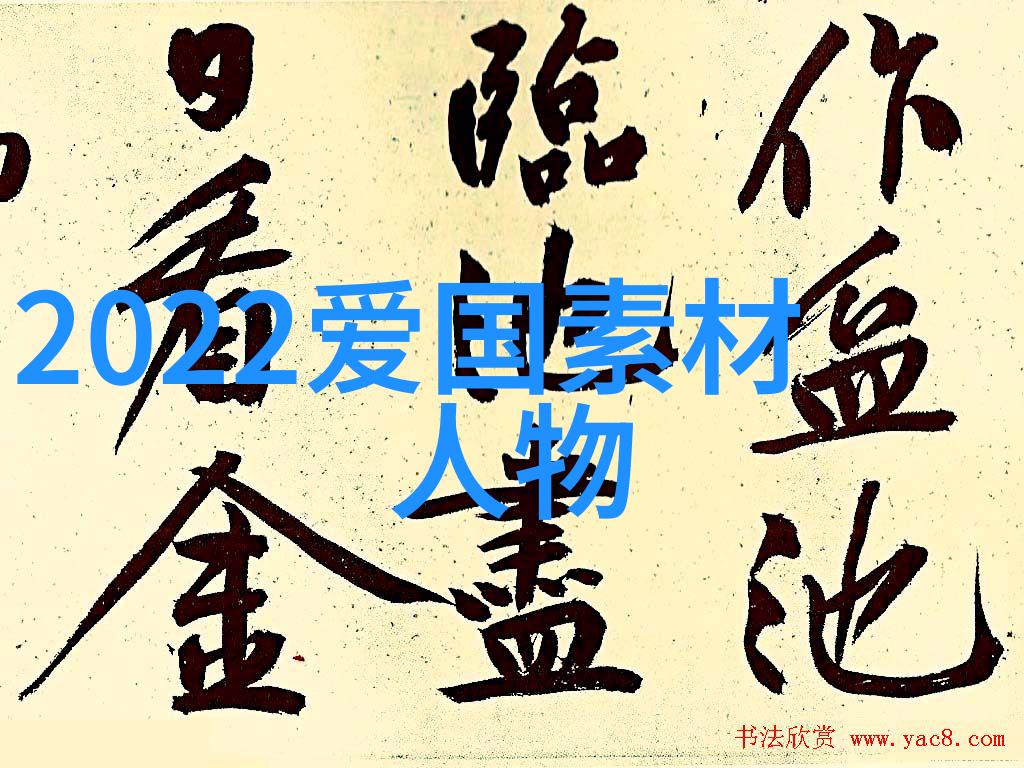 作盆池
臨盡
日看金
2022爱国素材
人物
书法欣赏 www.yac8.com